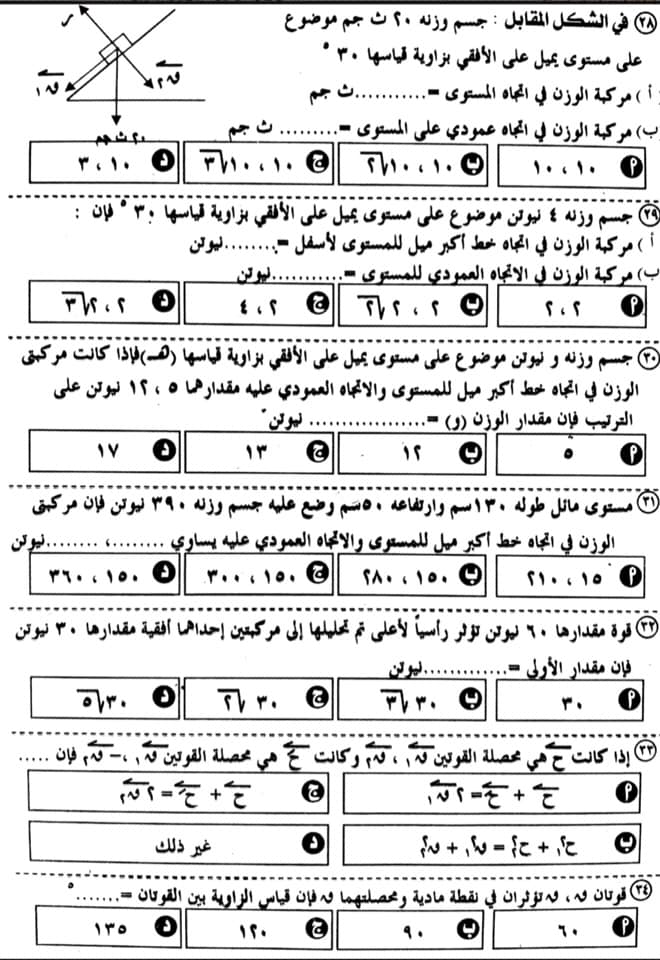 ٢٨ في الشكل المقابل : جسم وزنه ٢٠ ث جم موضوع
على مستوى يميل على الأفقي بزاوية قياسها ٣٠ °
أ ) مركبة الوزن في اتجاه المستوى =...........ث جم
ب) مركبة الوزن في اتجاه عمودي على المستوى =......... ث جم
ر
ق١
ق٢
٢٠ ث جم
أ ١٠ ، ١٠ ب ١٠ ، ١٠√٢ ج ١٠ ، ١٠√٣ د ١٠ ، ٣
٢٩ جسم وزنه ٤ نيوتن موضوع على مستوى يميل على الأفقي بزاوية قياسها ٣٠ ° فإن :
أ ) مركبة الوزن في اتجاه خط أكبر ميل للمستوى لأسفل =.........نيوتن
ب) مركبة الوزن في الاتجاه العمودي للمستوى =............نيوتن
أ ٢ ، ٢ ب ٢ ، ٢√٢ ج ٢ ، ٤ د ٢ ، ٢√٣
٣٠ جسم وزنه و نيوتن موضوع على مستوى يميل على الأفقي بزاوية قياسها (هـ)فإذا كانت مركبتى
الوزن في اتجاه خط أكبر ميل للمستوى والاتجاه العمودي عليه مقدارهما ٥ ، ١٢ نيوتن على
الترتيب فإن مقدار الوزن (و) =.................. نيوتن
أ ٥ ب ١٢ ج ١٣ د ١٧
٣١ مستوى مائل طوله ١٣٠سم وارتفاعه ٥٠سم وضع عليه جسم وزنه ٣٩٠ نيوتن فإن مركبتى
الوزن في اتجاه خط أكبر ميل للمستوى والاتجاه العمودي عليه يساوي ........، ........نيوتن
أ ١٥ ، ٢١٠ ب ١٥٠ ، ٢٨٠ ج ١٥٠ ، ٣٠٠ د ١٥٠ ، ٣٦٠
٣٢ قوة مقدارها ٦٠ نيوتن تؤثر رأسياً لأعلى تم تحليلها إلى مركبتين إحداهما أفقية مقدارها ٣٠ نيوتن
فإن مقدار الأولى =.............نيوتن
أ ٣٠ ب ٣٠√٣ ج ٣٠√٢ د ٣٠√٥
٣٣ إذا كانت ح هي محصلة القوتين ق١ ، ق٢ وكانت ح َ هي محصلة القوتين ق١ ، - ق٢ فإن .....
أ ح + ح َ = ٢ ق١ ج ح + ح َ = ٢ ق٢
ب ح١٢ + ح٢٢ = ق١٢ + ق٢٢ د غير ذلك
٣٤ قوتان ق ، ق تؤثران في نقطة مادية ومحصلتهما ق فإن قياس الزاوية بين القوتان =.......°
أ ٦٠ ب ٩٠ ج ١٢٠ د ١٣٥